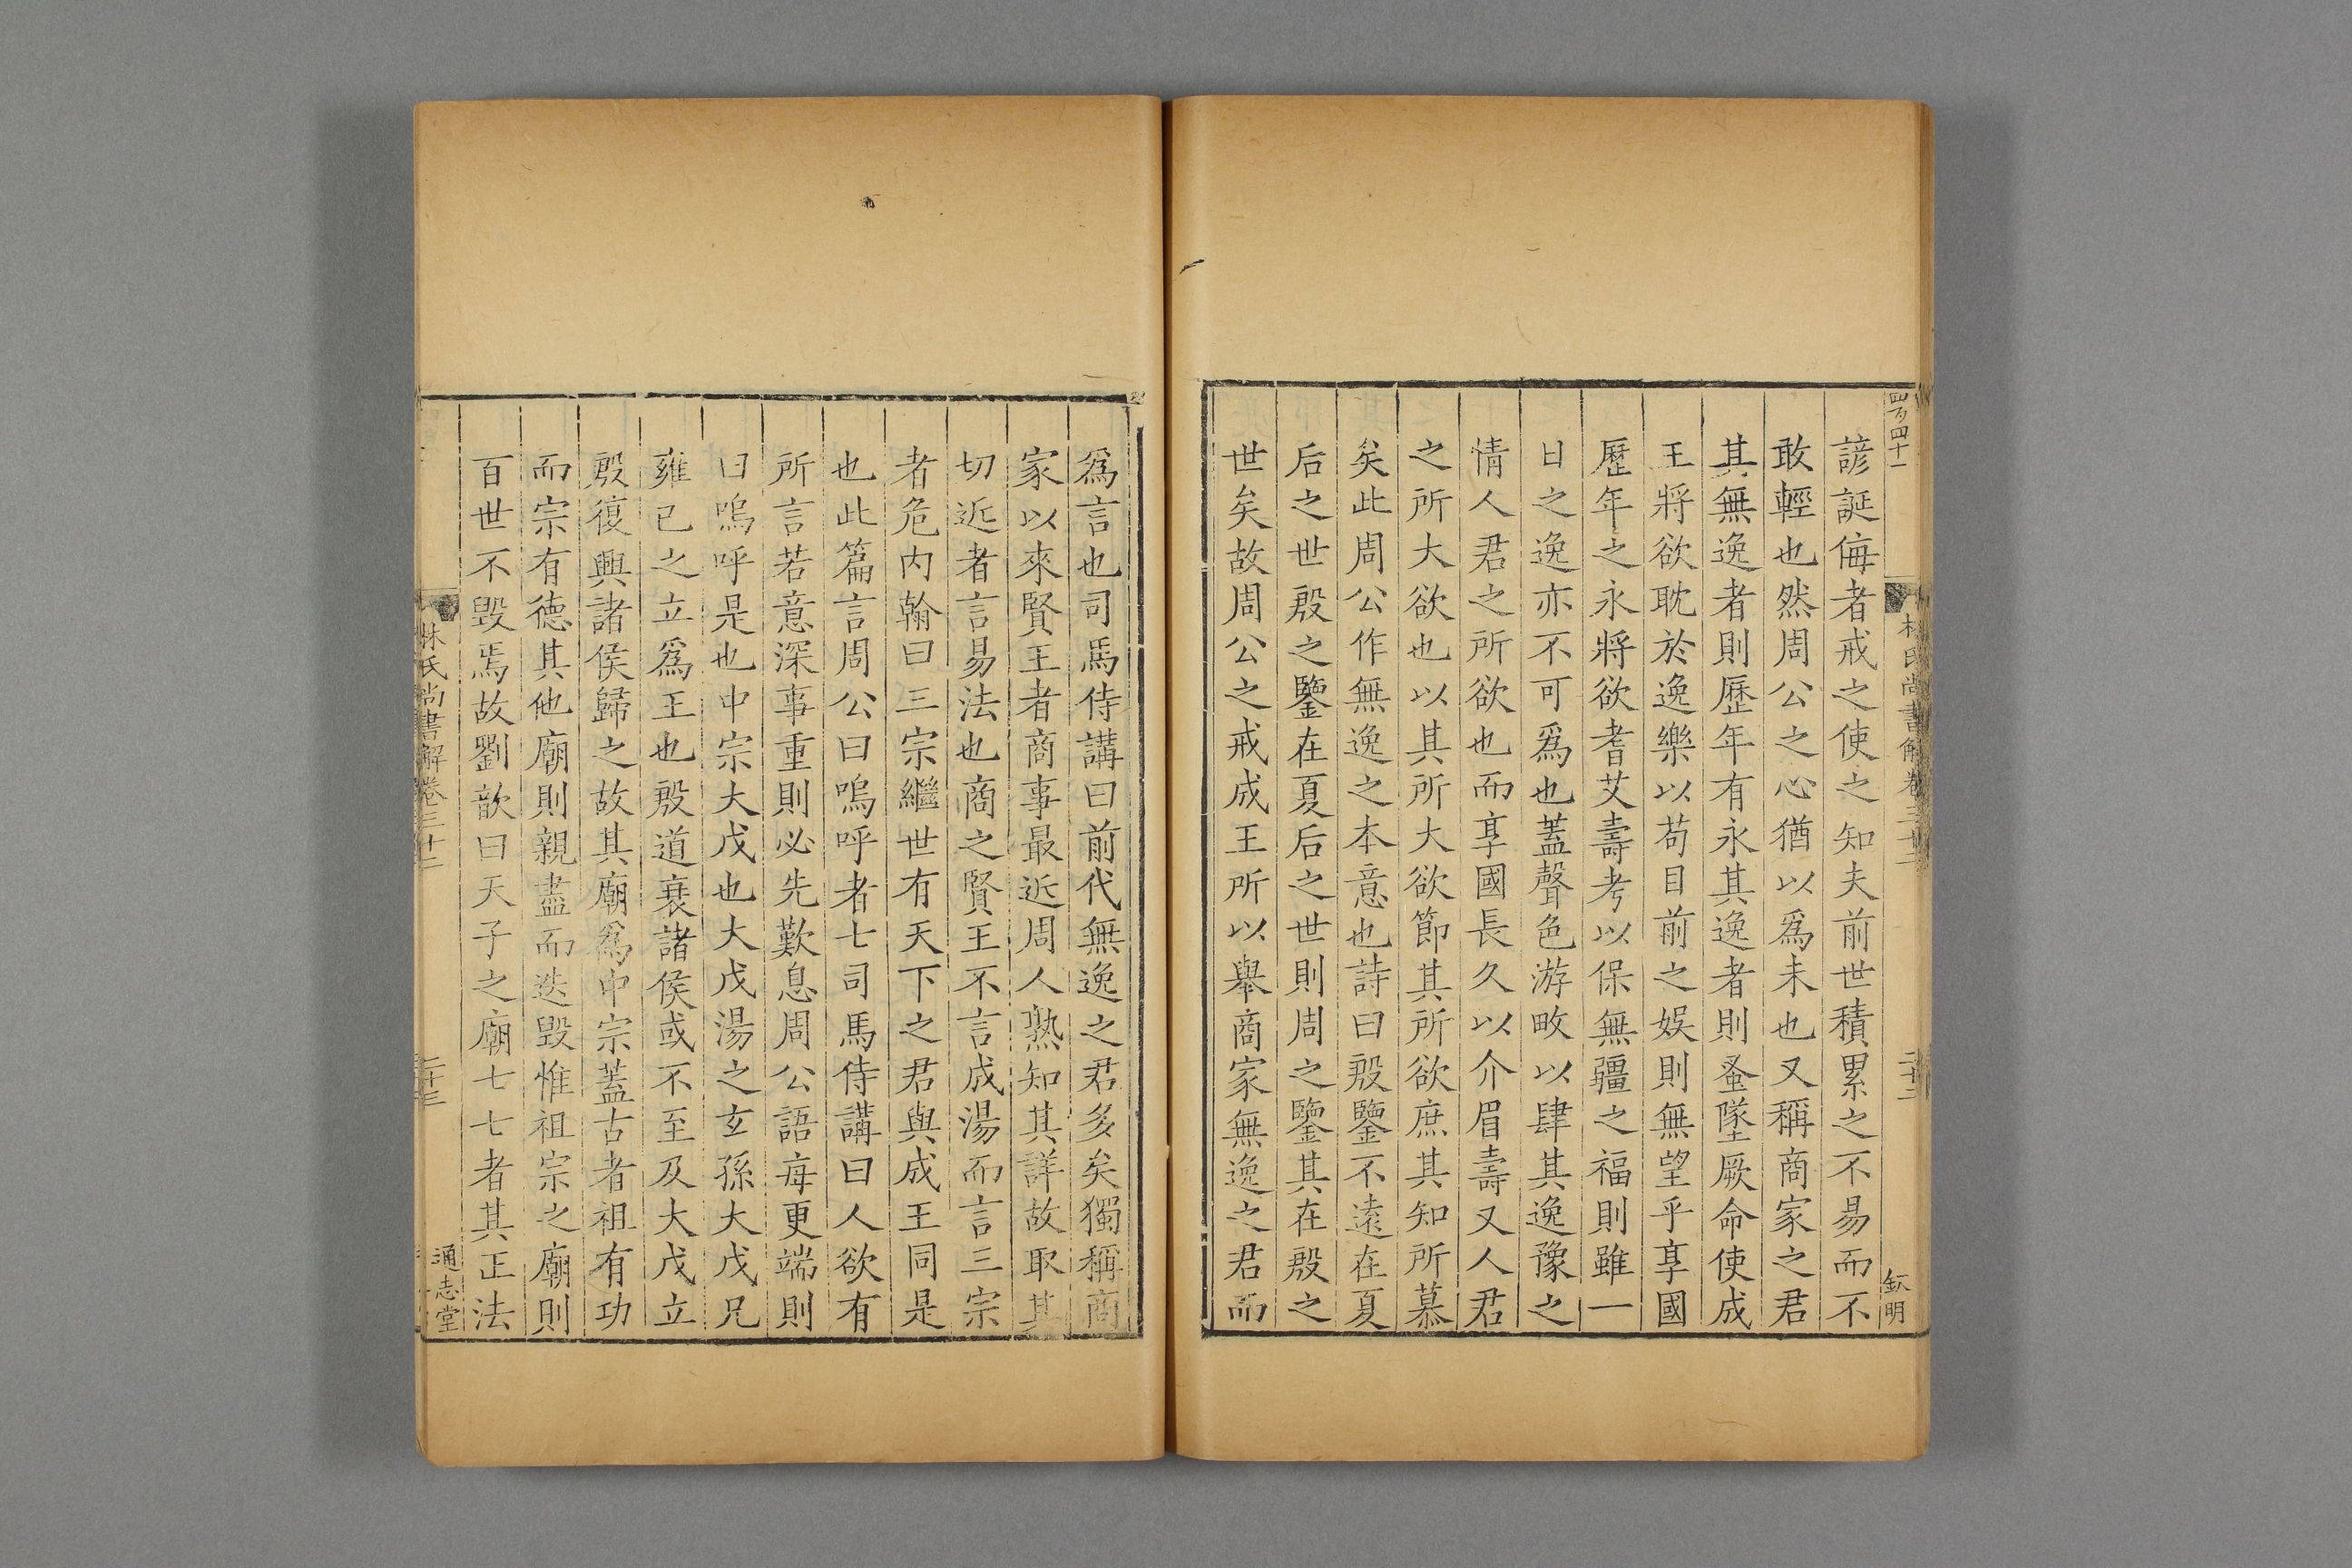 四百四十一
諺誕侮者戒之使之知夫前世積累之不易而不
敢輕也然周公之心猶以爲未也又稱商家之君
其無逸者則歷年有永其逸者則蚤墜厥命使成
王將欲耽於逸樂以苟目前之娛則無望乎享國
歷年之永將欲耆艾壽考以保無疆之福則雖一
日之逸亦不可爲也蓋聲色游畋以肆其逸豫之
情人君之所欲也而享國長久以介眉壽又人君
之所大欲也以其所大欲節其所欲庶其知所慕
矣此周公作無逸之本意也詩曰殷鑒不遠在夏
后之世殷之鑒在夏后之世則周之鑒其在殷之
世矣故周公之戒成王所以舉商家無逸之君而
林氏尚書解卷三十二
二十三
爲言也司馬侍講曰前代無逸之君多矣獨稱商
家以來賢王者商事最近周人熟知其詳故取其
切近者言易法也商之賢王不言成湯而言三宗
者危內翰曰三宗繼世有天下之君與成王同是
也此篇言周公曰嗚呼者七司馬侍講曰人欲有
所言若意深事重則必先歎息周公語每更端則
曰嗚呼是也中宗大戊也大戊湯之玄孫大戊兄
雍己之立爲王也殷道衰諸侯或不至及大戊立
殷復興諸侯歸之故其廟爲中宗蓋古者祖有功
而宗有德其他廟則親盡而迭毀惟祖宗之廟則
百世不毀焉故劉歆曰天子之廟七七者其正法
林氏尚書解卷三十二
二十三
通志堂